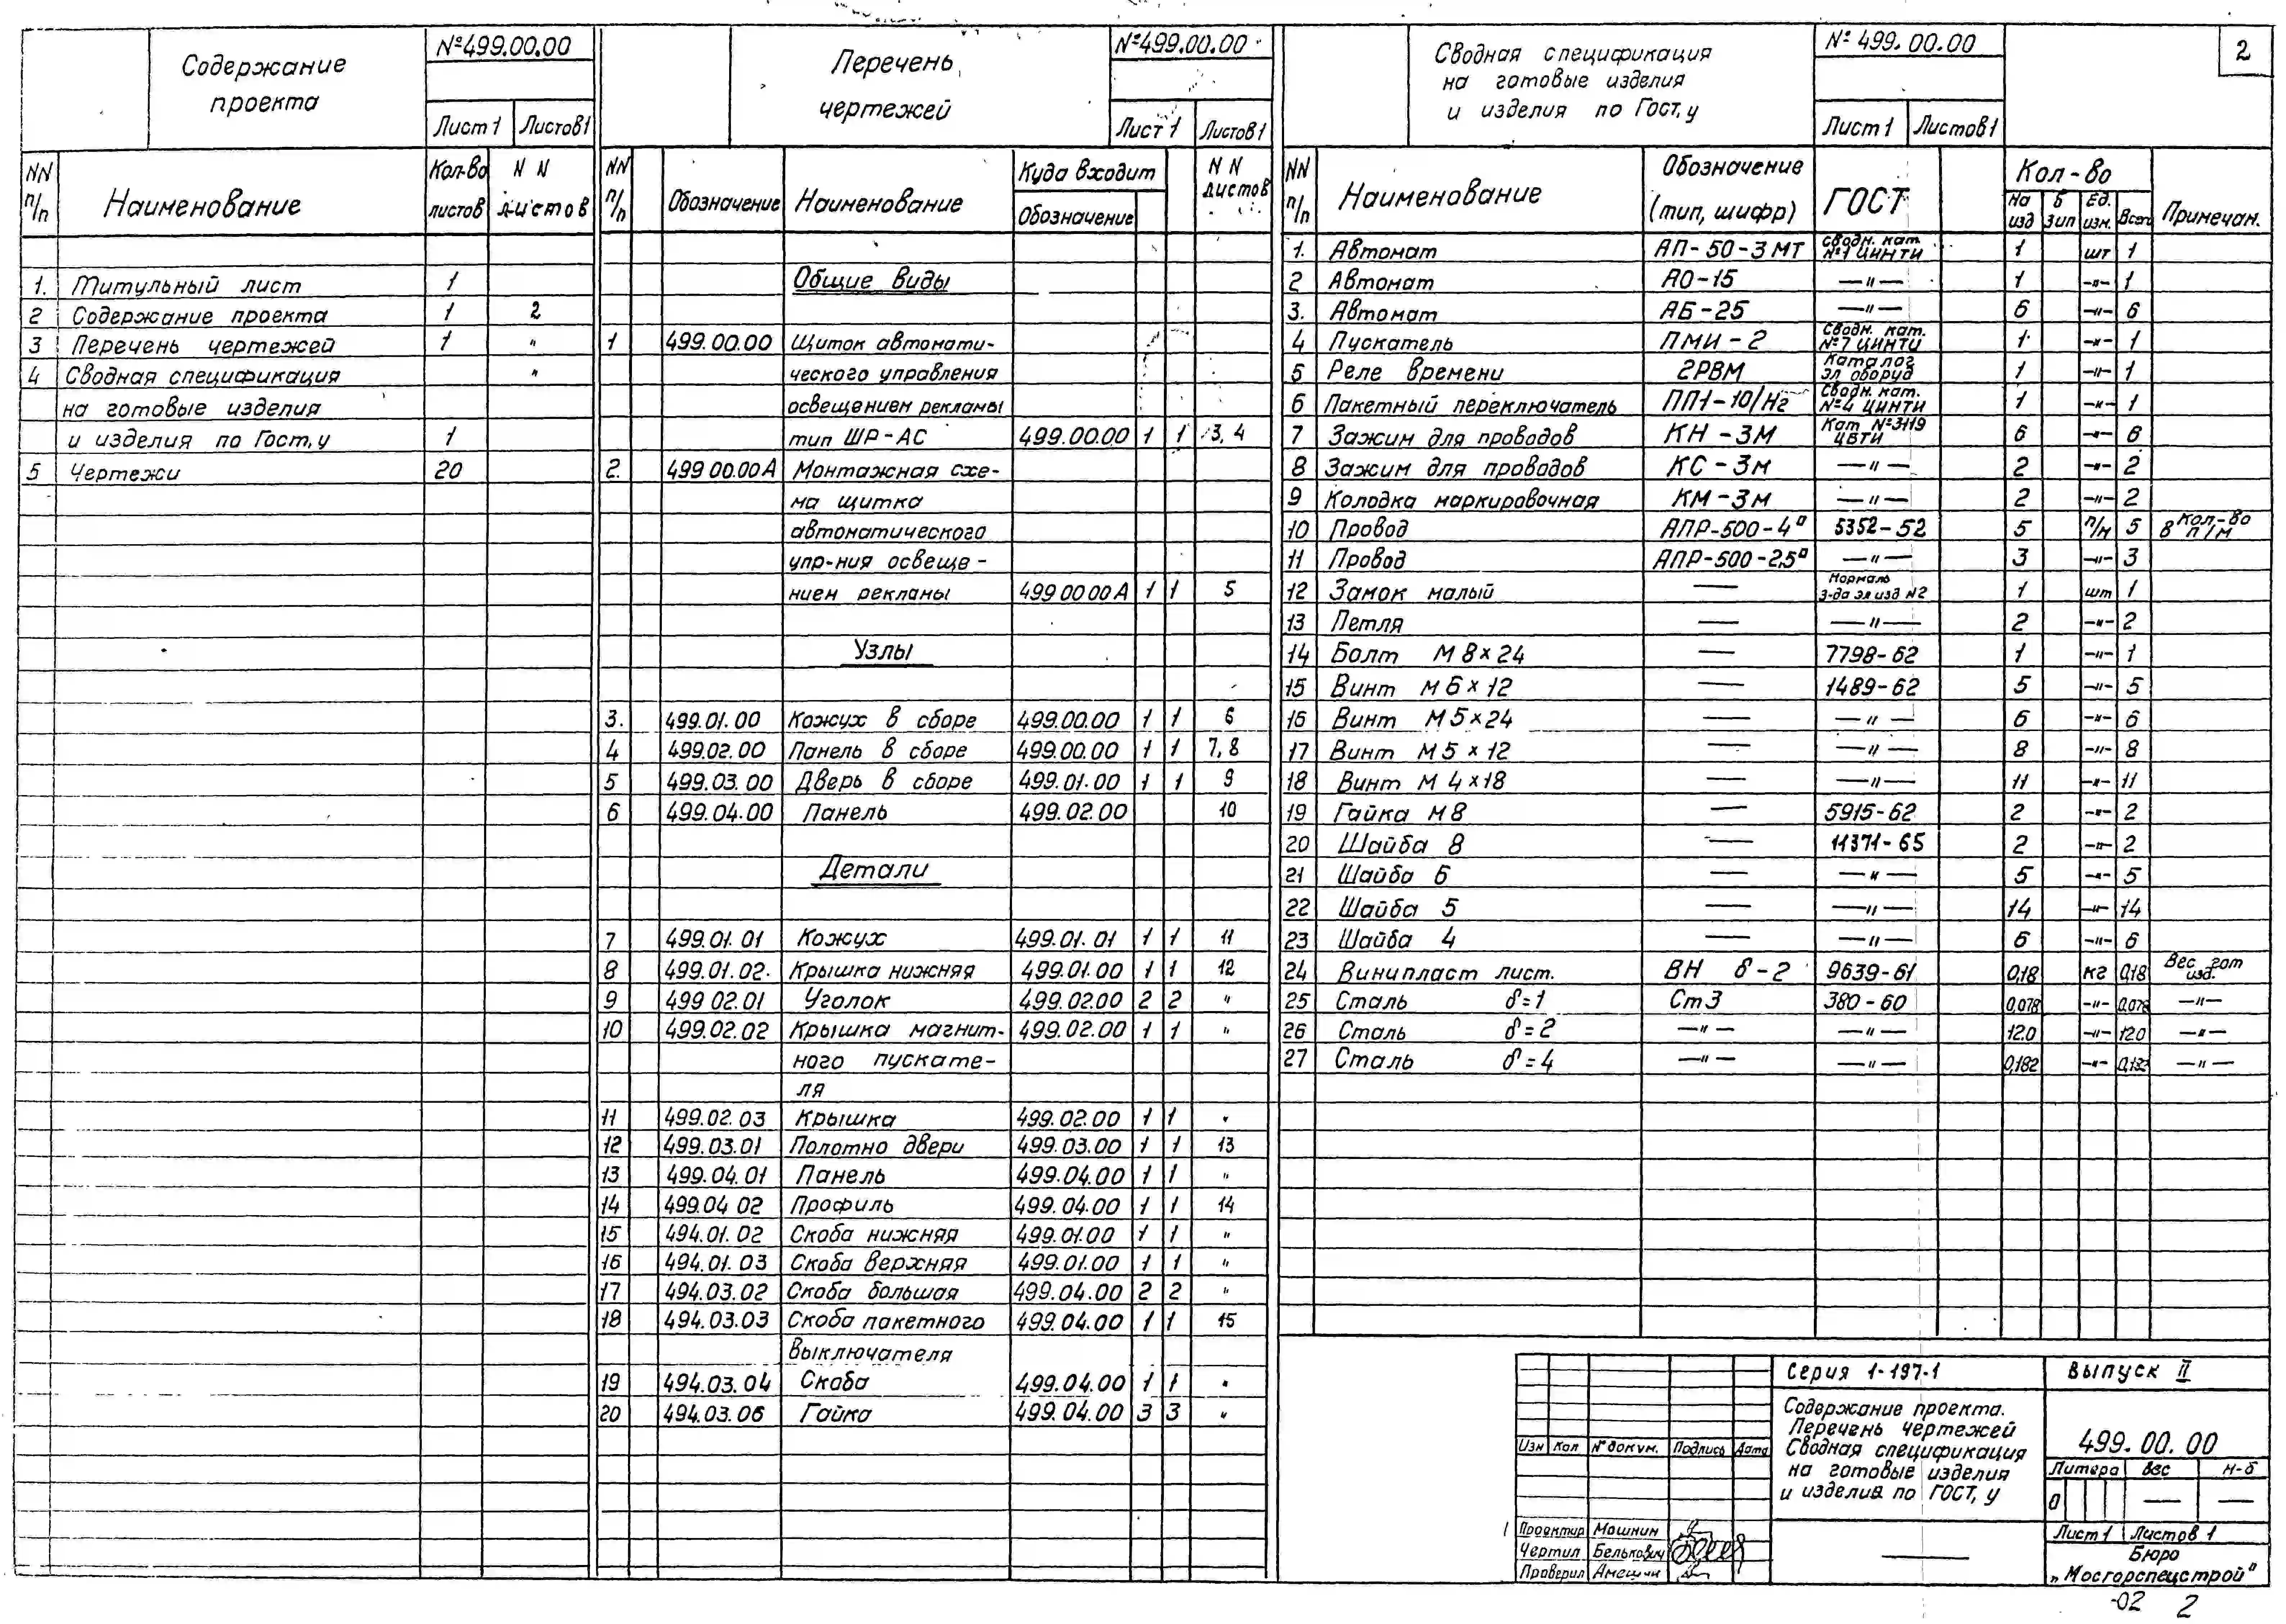 Содержание
проекта
№499.00.00
Лист 1 Листов 1
NN п/п Наименование Кол-во листов N N листов
1. Титульный лист 1
2 Содержание проекта 1 2
3 Перечень чертежей 1 "
4 Сводная спецификация "
на готовые изделия
и изделия по Гост, у 1
5 Чертежи 20
Перечень
чертежей
№499.00.00
Лист 1 Листов 1
NN п/п Обозначение Наименование Куда входит Обозначение N N листов
Общие виды
1 499.00.00 Щиток автомати-
ческого управления
освещением рекламы
тип ШР-АС 499.00.00 1 1 3, 4
2. 499 00.00А Монтажная схе-
ма щитка
автоматического
упр-ния освеще-
нием рекламы 499 00 00А 1 1 5
Узлы
3. 499.01.00 Кожух в сборе 499.00.00 1 1 6
4 499.02.00 Панель в сборе 499.00.00 1 1 7, 8
5 499.03.00 Дверь в сборе 499.01.00 1 1 9
6 499.04.00 Панель 499.02.00 10
Детали
7 499.01.01 Кожух 499.01.01 1 1 11
8 499.01.02 Крышка нижняя 499.01.00 1 1 12
9 499 02.01 Уголок 499.02.00 2 2 "
10 499.02.02 Крышка магнит- 499.02.00 1 1 "
ного пускате-
ля
11 499.02.03 Крышка 499.02.00 1 1 "
12 499.03.01 Полотно двери 499.03.00 1 1 13
13 499.04.01 Панель 499.04.00 1 1 "
14 499.04 02 Профиль 499.04.00 1 1 14
15 494.01.02 Скоба нижняя 499.01.00 1 1 "
16 494.01.03 Скоба верхняя 499.01.00 1 1 "
17 494.03.02 Скоба большая 499.04.00 2 2 "
18 494.03.03 Скоба пакетного 499.04.00 1 1 15
выключателя
19 494.03.04 Скоба 499.04.00 1 1 "
20 494.03.06 Гайка 499.04.00 3 3 "
Сводная спецификация
на готовые изделия
и изделия по Гост, у
№ 499.00.00
Лист 1 Листов 1
2
NN п/п Наименование Обозначение (тип, шифр) ГОСТ Кол-во На изд Б Зип Ед. изм. Всего Примечан.
1. Автомат АП-50-3 МТ Сводн. кат. №7 ЦИНТИ 1 шт 1
2 Автомат АО-15 —"— 1 —"— 1
3. Автомат АБ-25 —"— 6 —"— 6
4 Пускатель ПМИ-2 Сводн. кат. №7 ЦИНТИ 1 —"— 1
5 Реле времени 2РВМ Каталог эл оборуд 1 —"— 1
6 Пакетный переключатель ПП1-10/Н2 Сводн. кат. №4 ЦИНТИ 1 —"— 1
7 Зажим для проводов КН-3М Кат №3119 ЦБТИ 6 —"— 6
8 Зажим для проводов КС-3м —"— 2 —"— 2
9 Колодка маркировочная КМ-3м —"— 2 —"— 2
10 Провод АПР-500-4▫ 5352-52 5 п/м 5 Кол-во в п/м
11 Провод АПР-500-2,5▫ —"— 3 —"— 3
12 Замок малый — Нормаль з-да эл изд N2 1 шт 1
13 Петля — —"— 2 —"— 2
14 Болт М 8×24 — 7798-62 1 —"— 1
15 Винт М 6×12 — 1489-62 5 —"— 5
16 Винт М 5×24 — —"— 6 —"— 6
17 Винт М 5×12 — —"— 8 —"— 8
18 Винт М 4×18 — —"— 11 —"— 11
19 Гайка М8 — 5915-62 2 —"— 2
20 Шайба 8 — 11371-65 2 —"— 2
21 Шайба 6 — —"— 5 —"— 5
22 Шайба 5 — —"— 14 —"— 14
23 Шайба 4 — —"— 6 —"— 6
24 Винипласт лист. ВН δ-2 9639-61 0,18 кг 0,18 Вес гот изд.
25 Сталь δ=1 Ст3 380-60 0,078 —"— 0,078 —"—
26 Сталь δ=2 —"— —"— 12.0 —"— 12.0 —"—
27 Сталь δ=4 —"— —"— 0,182 —"— 0,182 —"—
Серия 1-197-1 Выпуск II
Содержание проекта.
Перечень чертежей
Сводная спецификация
на готовые изделия
и изделия по ГОСТ, у
499.00.00
Изм Кол № докум. Подпись Дата
Литера Вес М-б
0 — —
Лист 1 Листов 1
Проектир Машнин
Чертил Белькович
Проверил Амешин
Бюро
„Мосгорспецстрой"
-02 2